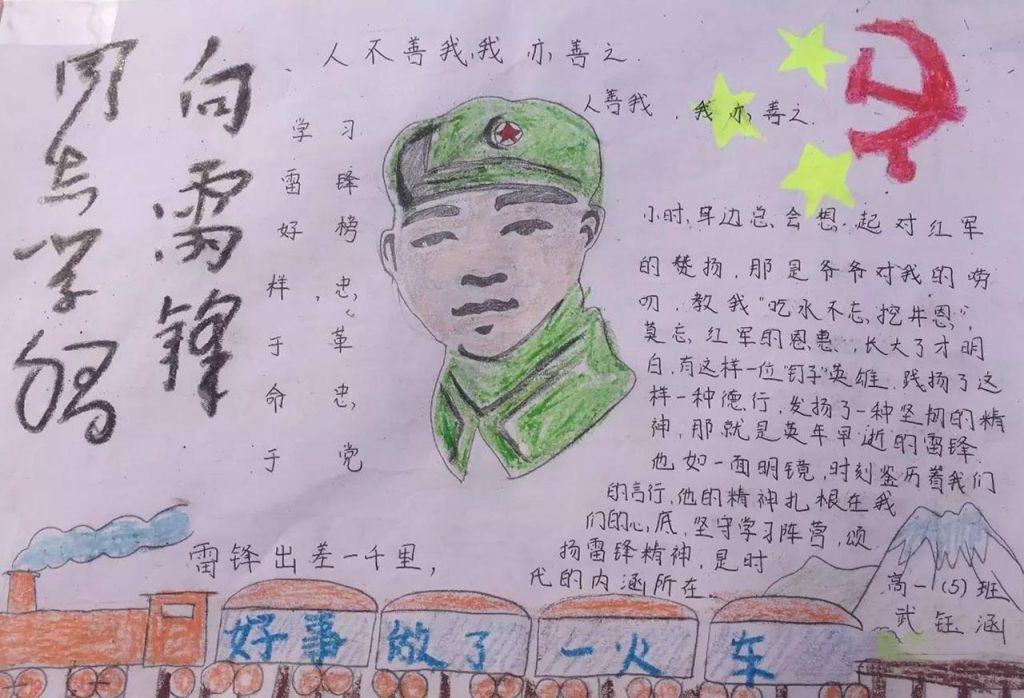 向雷锋
同志学习
人不善我,我亦善之.
人善我,我亦善之.
学习
雷锋
好榜
样,忠
于革
命忠,
于党
小时,耳边总会想起对红军
的赞扬,那是爷爷对我的唠
叨,教我"吃水不忘挖井恩",
莫忘红军的恩惠,长大了才明
白,有这样一位"钉子"英雄,践扬了这
样一种德行,发扬了一种坚韧的精
神,那就是英年早逝的雷锋.
他如一面明镜,时刻鉴历着我们
的言行,他的精神扎根在我
们的心底,坚守学习阵营,颂
扬雷锋精神,是时
代的内涵所在.
雷锋出差一千里,
好事做了一火车
高一(5)班
武钰涵